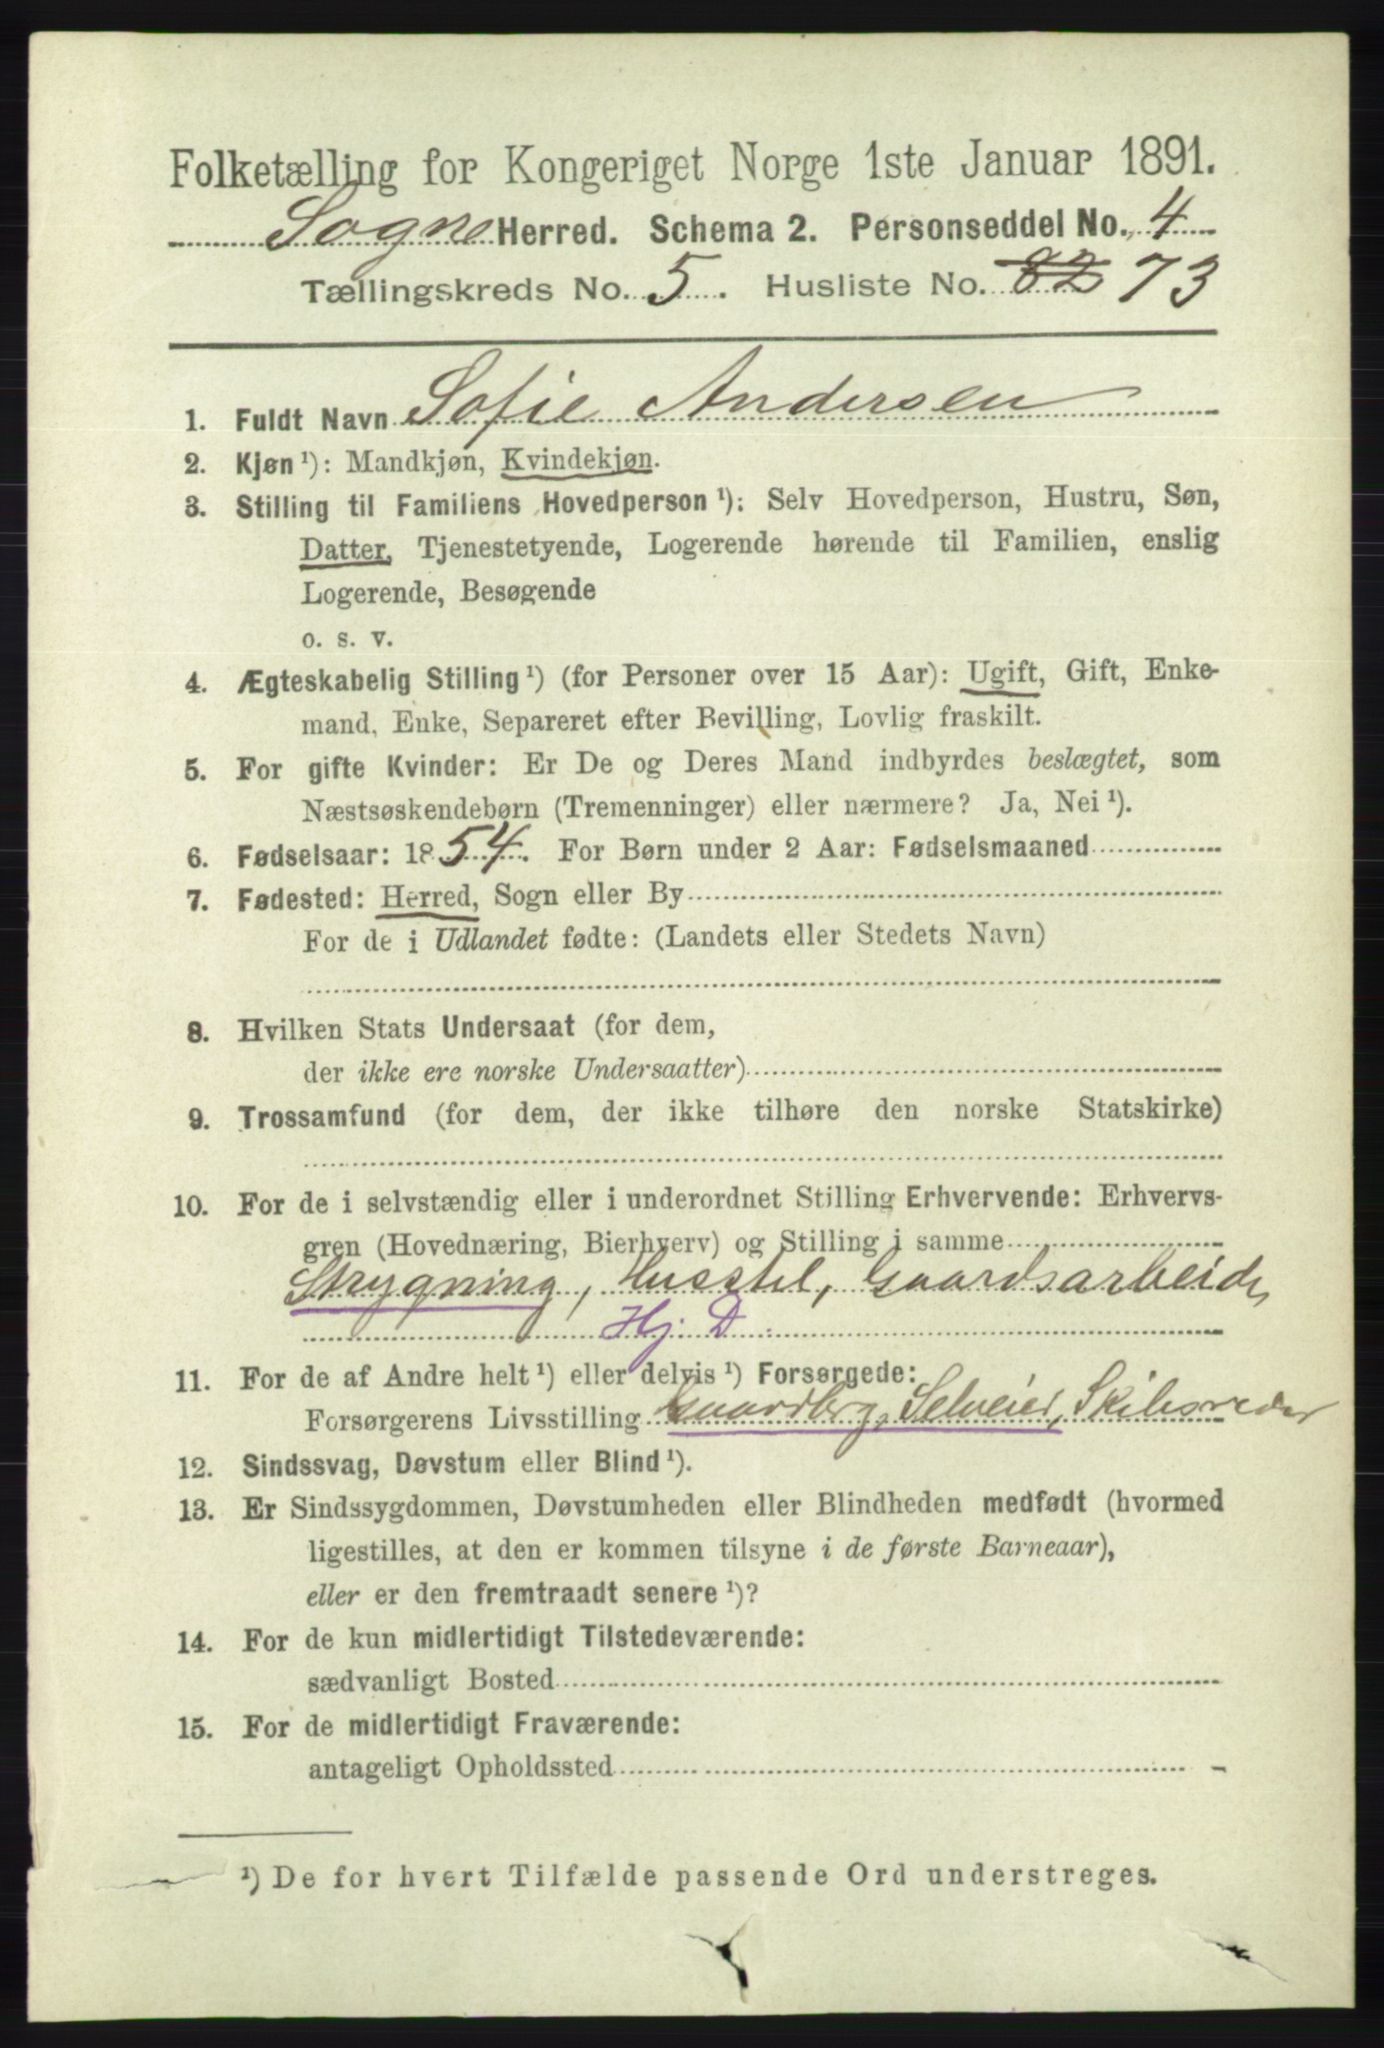 Folketælling for Kongeriget Norge 1ste Januar 1891.
Sogne Herred. Schema 2. Personseddel No. 4
Tællingskreds No. 5. Husliste No. 82 73
1. Fuldt Navn Sofie Andersen
2. Kjøn ¹): Mandkjøn, Kvindekjøn.
3. Stilling til Familiens Hovedperson ¹): Selv Hovedperson, Hustru, Søn,
Datter, Tjenestetyende, Logerende hørende til Familien, enslig
Logerende, Besøgende
o. s. v.
4. Ægteskabelig Stilling ¹) (for Personer over 15 Aar): Ugift, Gift, Enke-
mand, Enke, Separeret efter Bevilling, Lovlig fraskilt.
5. For gifte Kvinder: Er De og Deres Mand indbyrdes beslægtet, som
Næstsøskendebørn (Tremenninger) eller nærmere? Ja, Nei ¹).
6. Fødselsaar: 1854. For Børn under 2 Aar: Fødselsmaaned
7. Fødested: Herred, Sogn eller By
For de i Udlandet fødte: (Landets eller Stedets Navn)
8. Hvilken Stats Undersaat (for dem,
der ikke ere norske Undersaatter)
9. Trossamfund (for dem, der ikke tilhøre den norske Statskirke)
10. For de i selvstændig eller i underordnet Stilling Erhvervende: Erhvervs-
gren (Hovednæring, Bierhverv) og Stilling i samme
Strygning, Husstel, Gaardsarbeide,
Hj. D.
11. For de af Andre helt ¹) eller delvis ¹) Forsørgede:
Forsørgerens Livsstilling Gaardbrg, Selveier, Skibsreder
12. Sindssvag, Døvstum eller Blind ¹).
13. Er Sindssygdommen, Døvstumheden eller Blindheden medfødt (hvormed
ligestilles, at den er kommen tilsyne i de første Barneaar),
eller er den fremtraadt senere ¹)?
14. For de kun midlertidigt Tilstedeværende:
sædvanligt Bosted
15. For de midlertidigt Fraværende:
antageligt Opholdssted
¹) De for hvert Tilfælde passende Ord understreges.